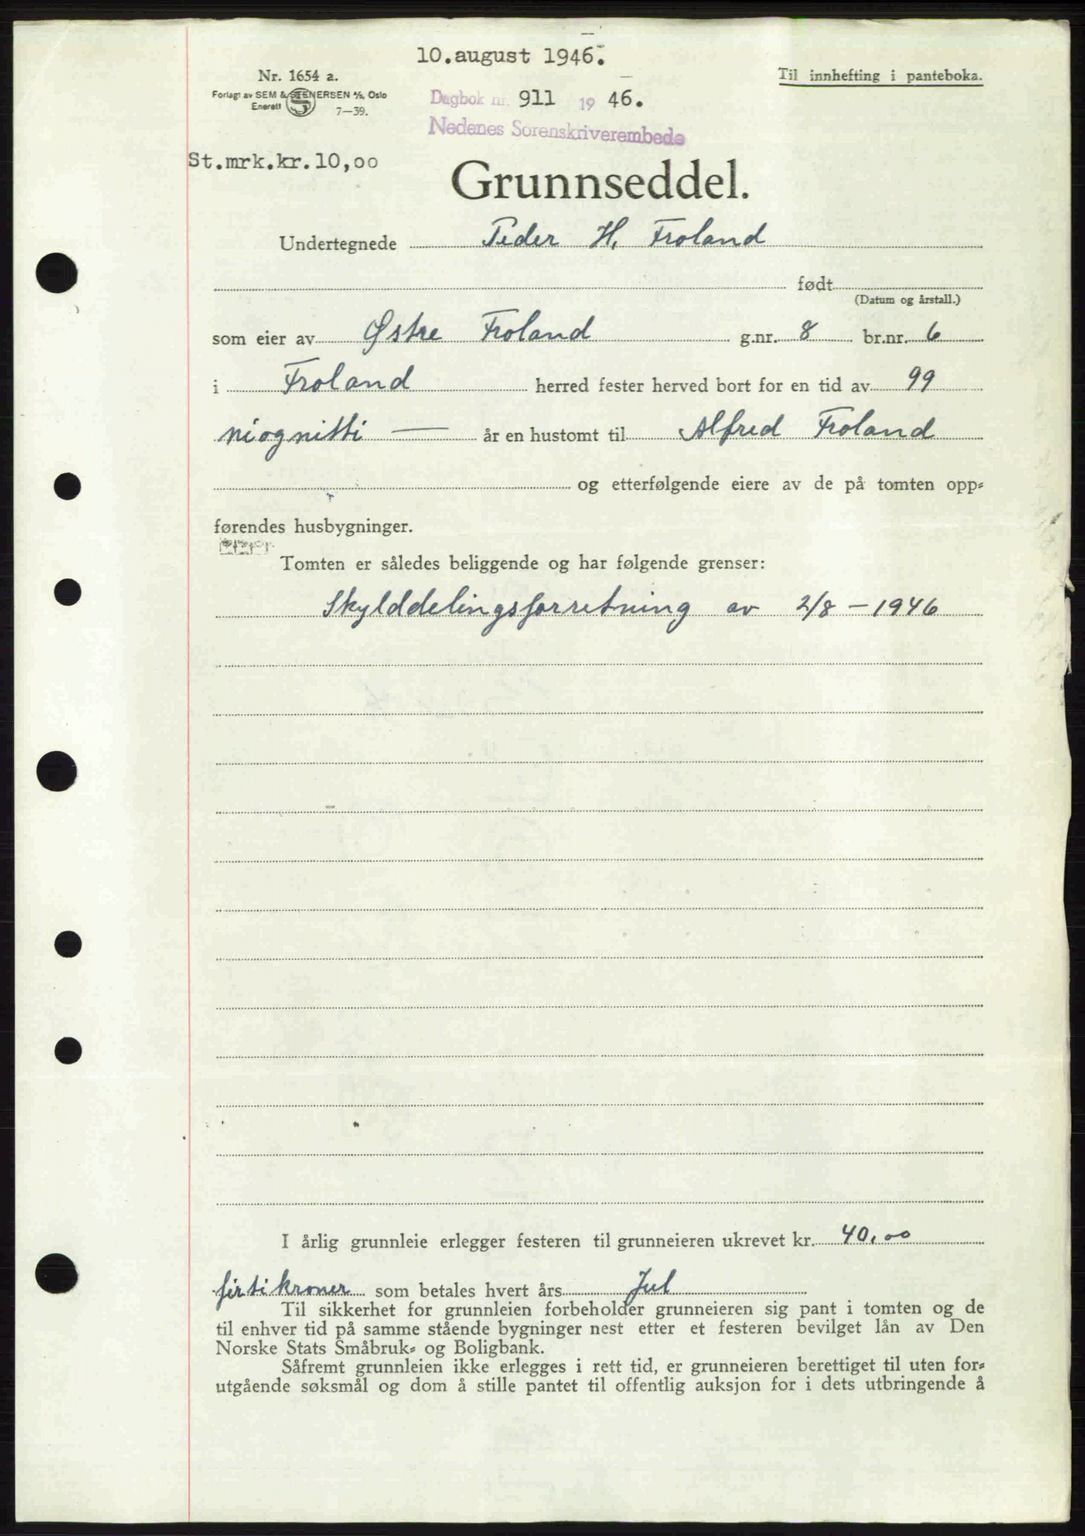 10.august 1946.
Nr. 1654 a.
Til innhefting i panteboka.
Forlagt av SEM & STENERSEN A/S, Oslo
Enerett
7—39.
Dagbok nr. 911 1946.
Nedenes Sorenskriverembede
St.mrk.kr.10,00
Grunnseddel.
Undertegnede Peder H. Froland
født
(Datum og årstall.)
som eier av Østre Froland g.nr. 8 br.nr. 6
i Froland herred fester herved bort for en tid av 99
niognitti — år en hustomt til Alfred Froland
og etterfølgende eiere av de på tomten opp-
førendes husbygninger.
Tomten er således beliggende og har følgende grenser:
Skylddelingsforretning av 2/8 - 1946
I årlig grunnleie erlegger festeren til grunneieren ukrevet kr. 40,00
førti kroner som betales hvert års Jul
Til sikkerhet for grunnleien forbeholder grunneieren sig pant i tomten og de
til enhver tid på samme stående bygninger nest etter et festeren bevilget lån av Den
Norske Stats Småbruk- og Boligbank.
Såfremt grunnleien ikke erlegges i rett tid, er grunneieren berettiget til uten for-
utgående søksmål og dom å stille pantet til offentlig auksjon for i dets utbringende å